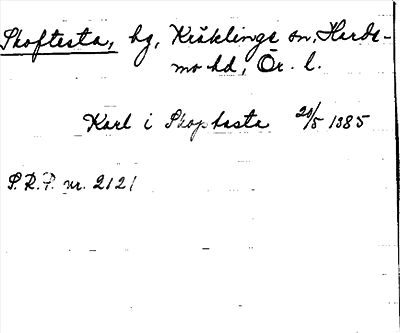 Skoftesta, hg, Kräklinge sn, Hards-
mo hd, Ör. l.
Karl i Skoptasta 20/5 1385
S.R.P. nr. 2121